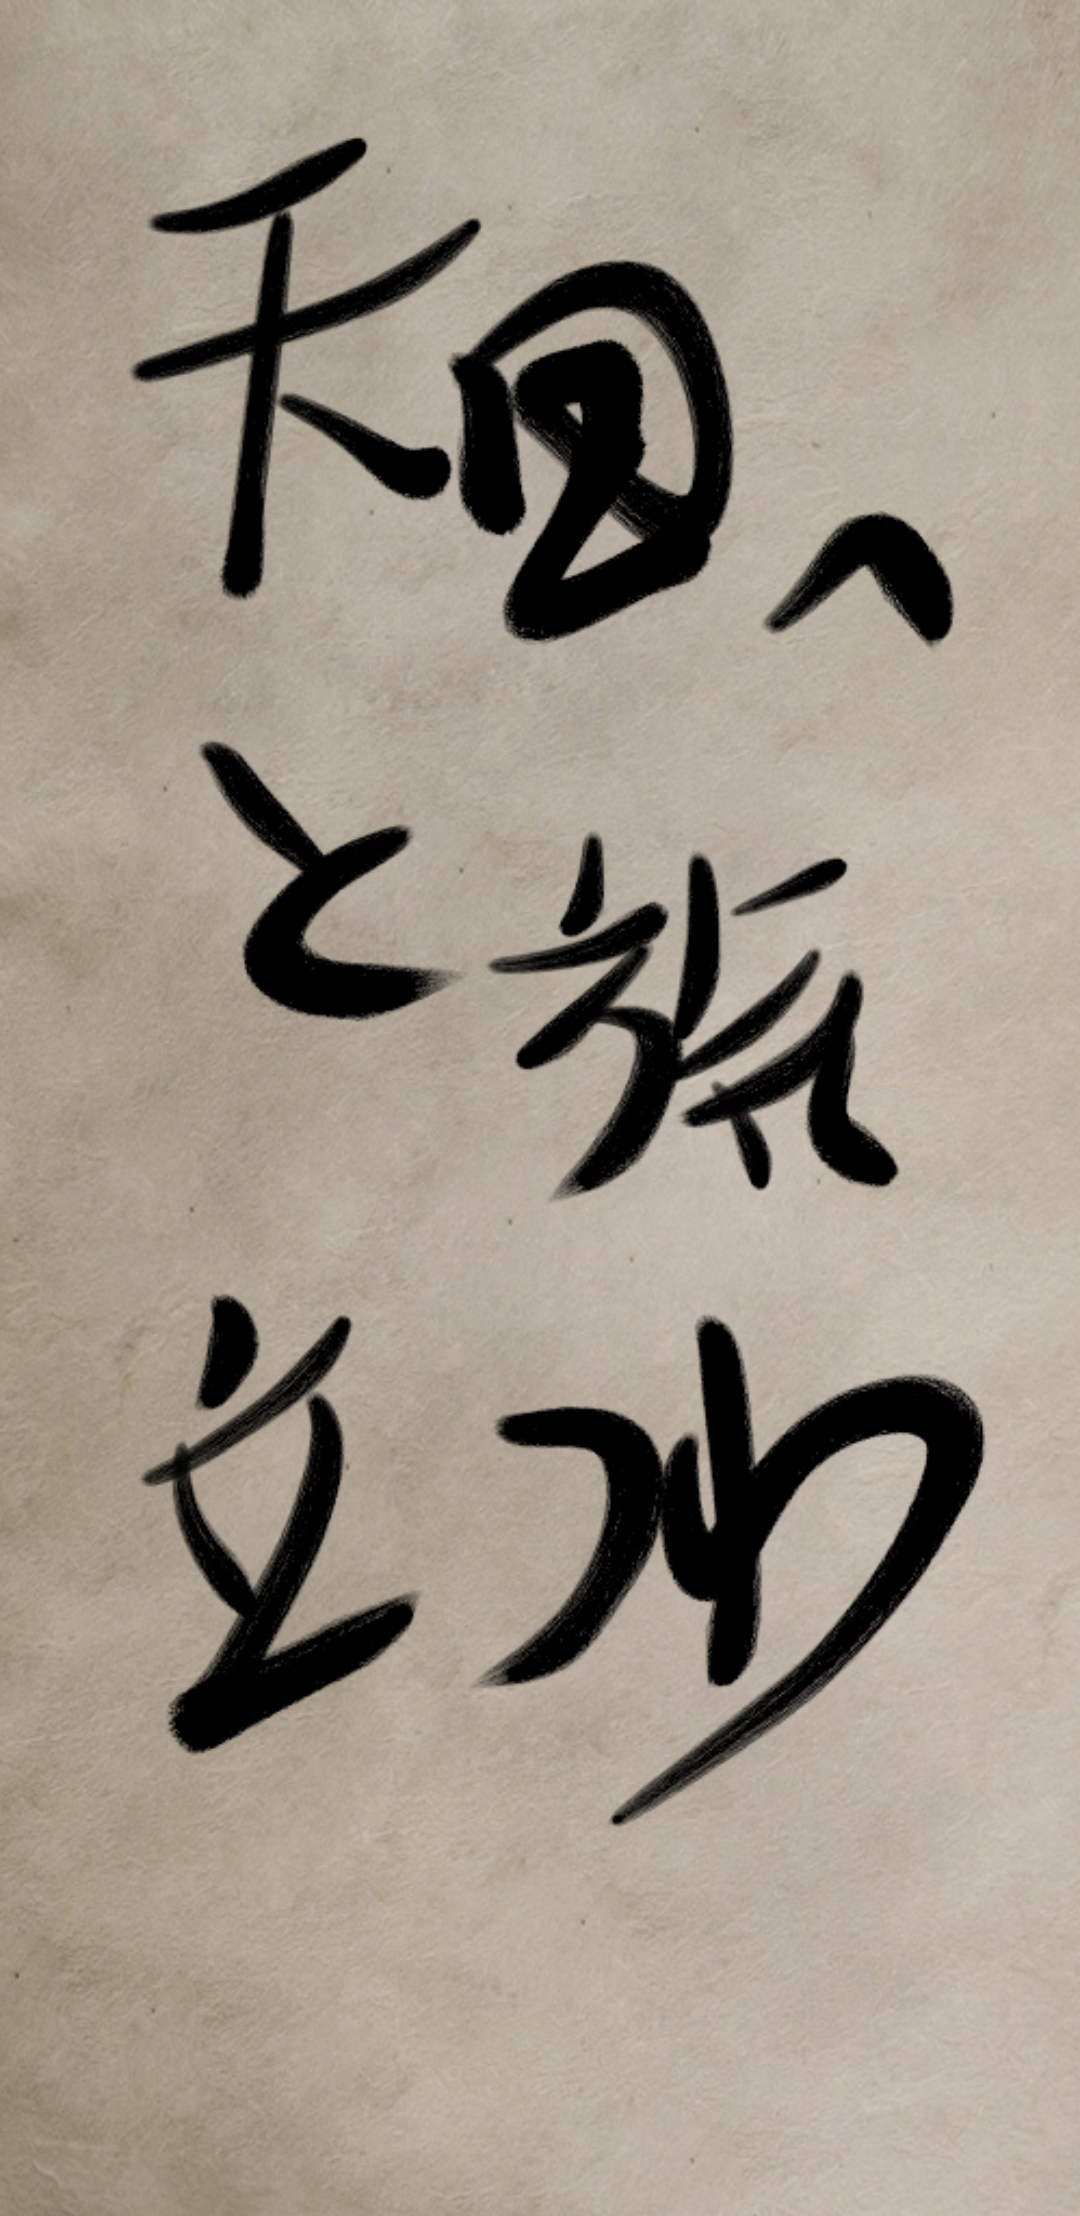 天国へ
と旅
立つ